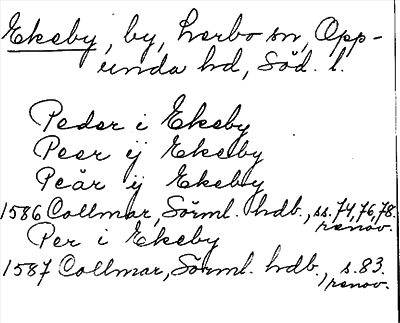 Ekeby, by, Lerbo sn, Opp-
unda hd, Söd. l.
Peder i Ekeby
Peer ij Ekeby
Peär ij Ekeby
1586 Collmar, Sörml. hdb., ss. 74, 76, 78.
renov.
Per i Ekeby
1587 Collmar, Sörml. hdb., s. 83.
renov.